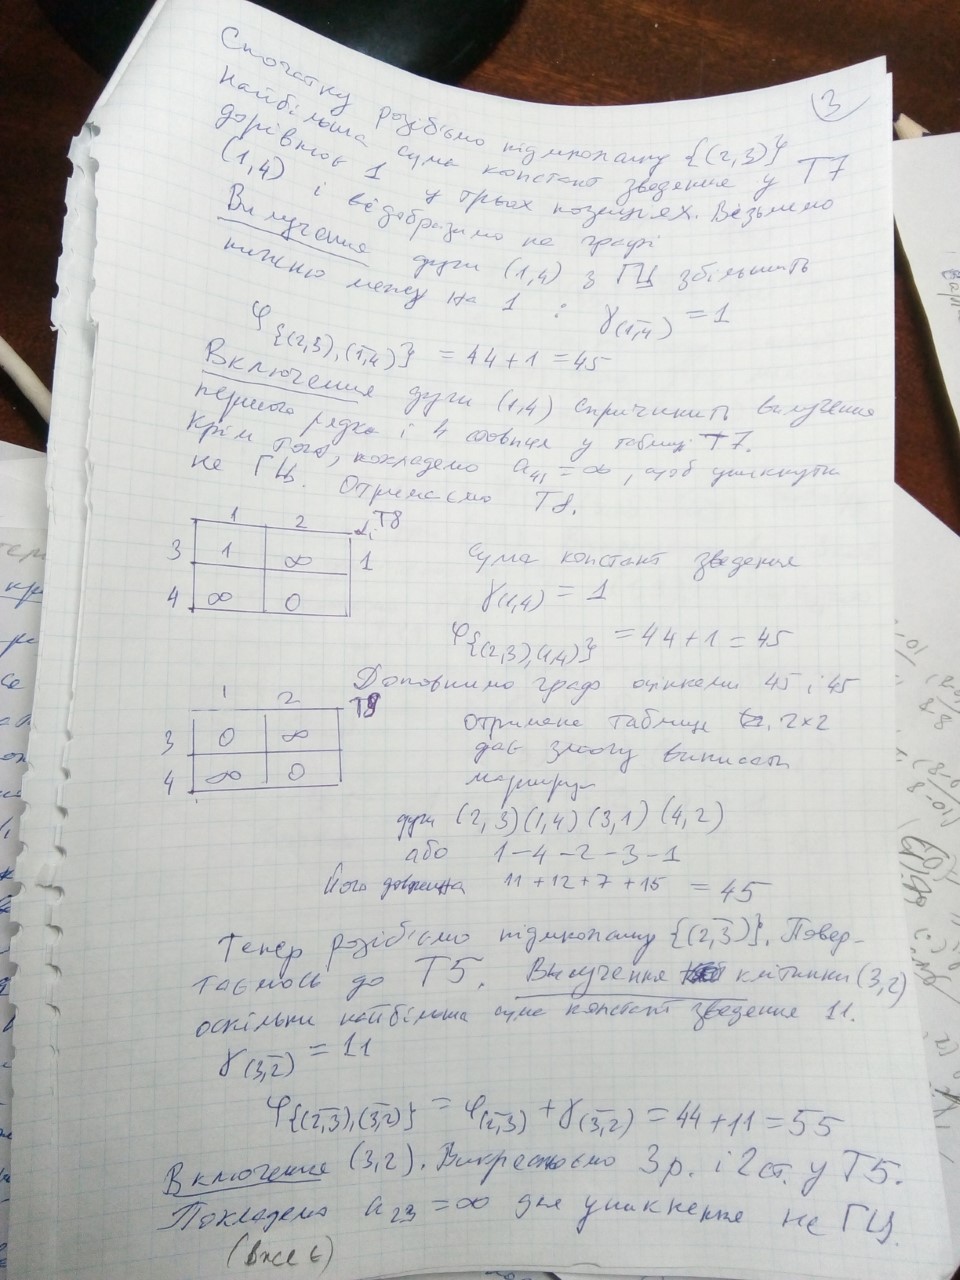 3
Спочатку розіб'ємо підмножину {(2,3)}
Найбільша сума констант зведення у Т7
дорівнює 1 у трьох позиціях. Візьмемо
(1,4) і відобразимо на графі
Вилучення дуги (1,4) з ГЦ збільшить
нижню межу на 1 : γ(1,4) = 1
φ{(2,3),(1,4)} = 44+1 = 45
Включення дуги (1,4) спричинить вилучення
першого рядка і 4 стовпця у таблиці Т7.
Крім того, покладемо a41 = ∞, щоб уникнути
не ГЦ. Отримаємо Т8.
1 2 αi Т8
3 1 ∞ 1
4 ∞ 0
Сума констант зведення
γ(1,4) = 1
φ{(2,3),(1,4)} = 44+1 = 45
Доповнимо граф оцінками 45 і 45
1 2 Т9
3 0 ∞
4 ∞ 0
Отримана таблиця 2x2
дає змогу виписати
маршрут
дуги (2,3)(1,4)(3,1)(4,2)
або 1-4-2-3-1
Його довжина 11+12+7+15 = 45
Тепер розіб'ємо підмножину {(2,3)}. Повер-
таємось до Т5. Вилучення клітинки (3,2)
оскільки найбільша сума констант зведення 11.
γ(3,2) = 11
φ{(2,3),(3,2)} = φ(2,3) + γ(3,2) = 44+11 = 55
Включення (3,2). Викреслюємо 3р. і 2ст. у Т5.
Покладемо a23 = ∞ для уникнення не ГЦ.
(вже є)